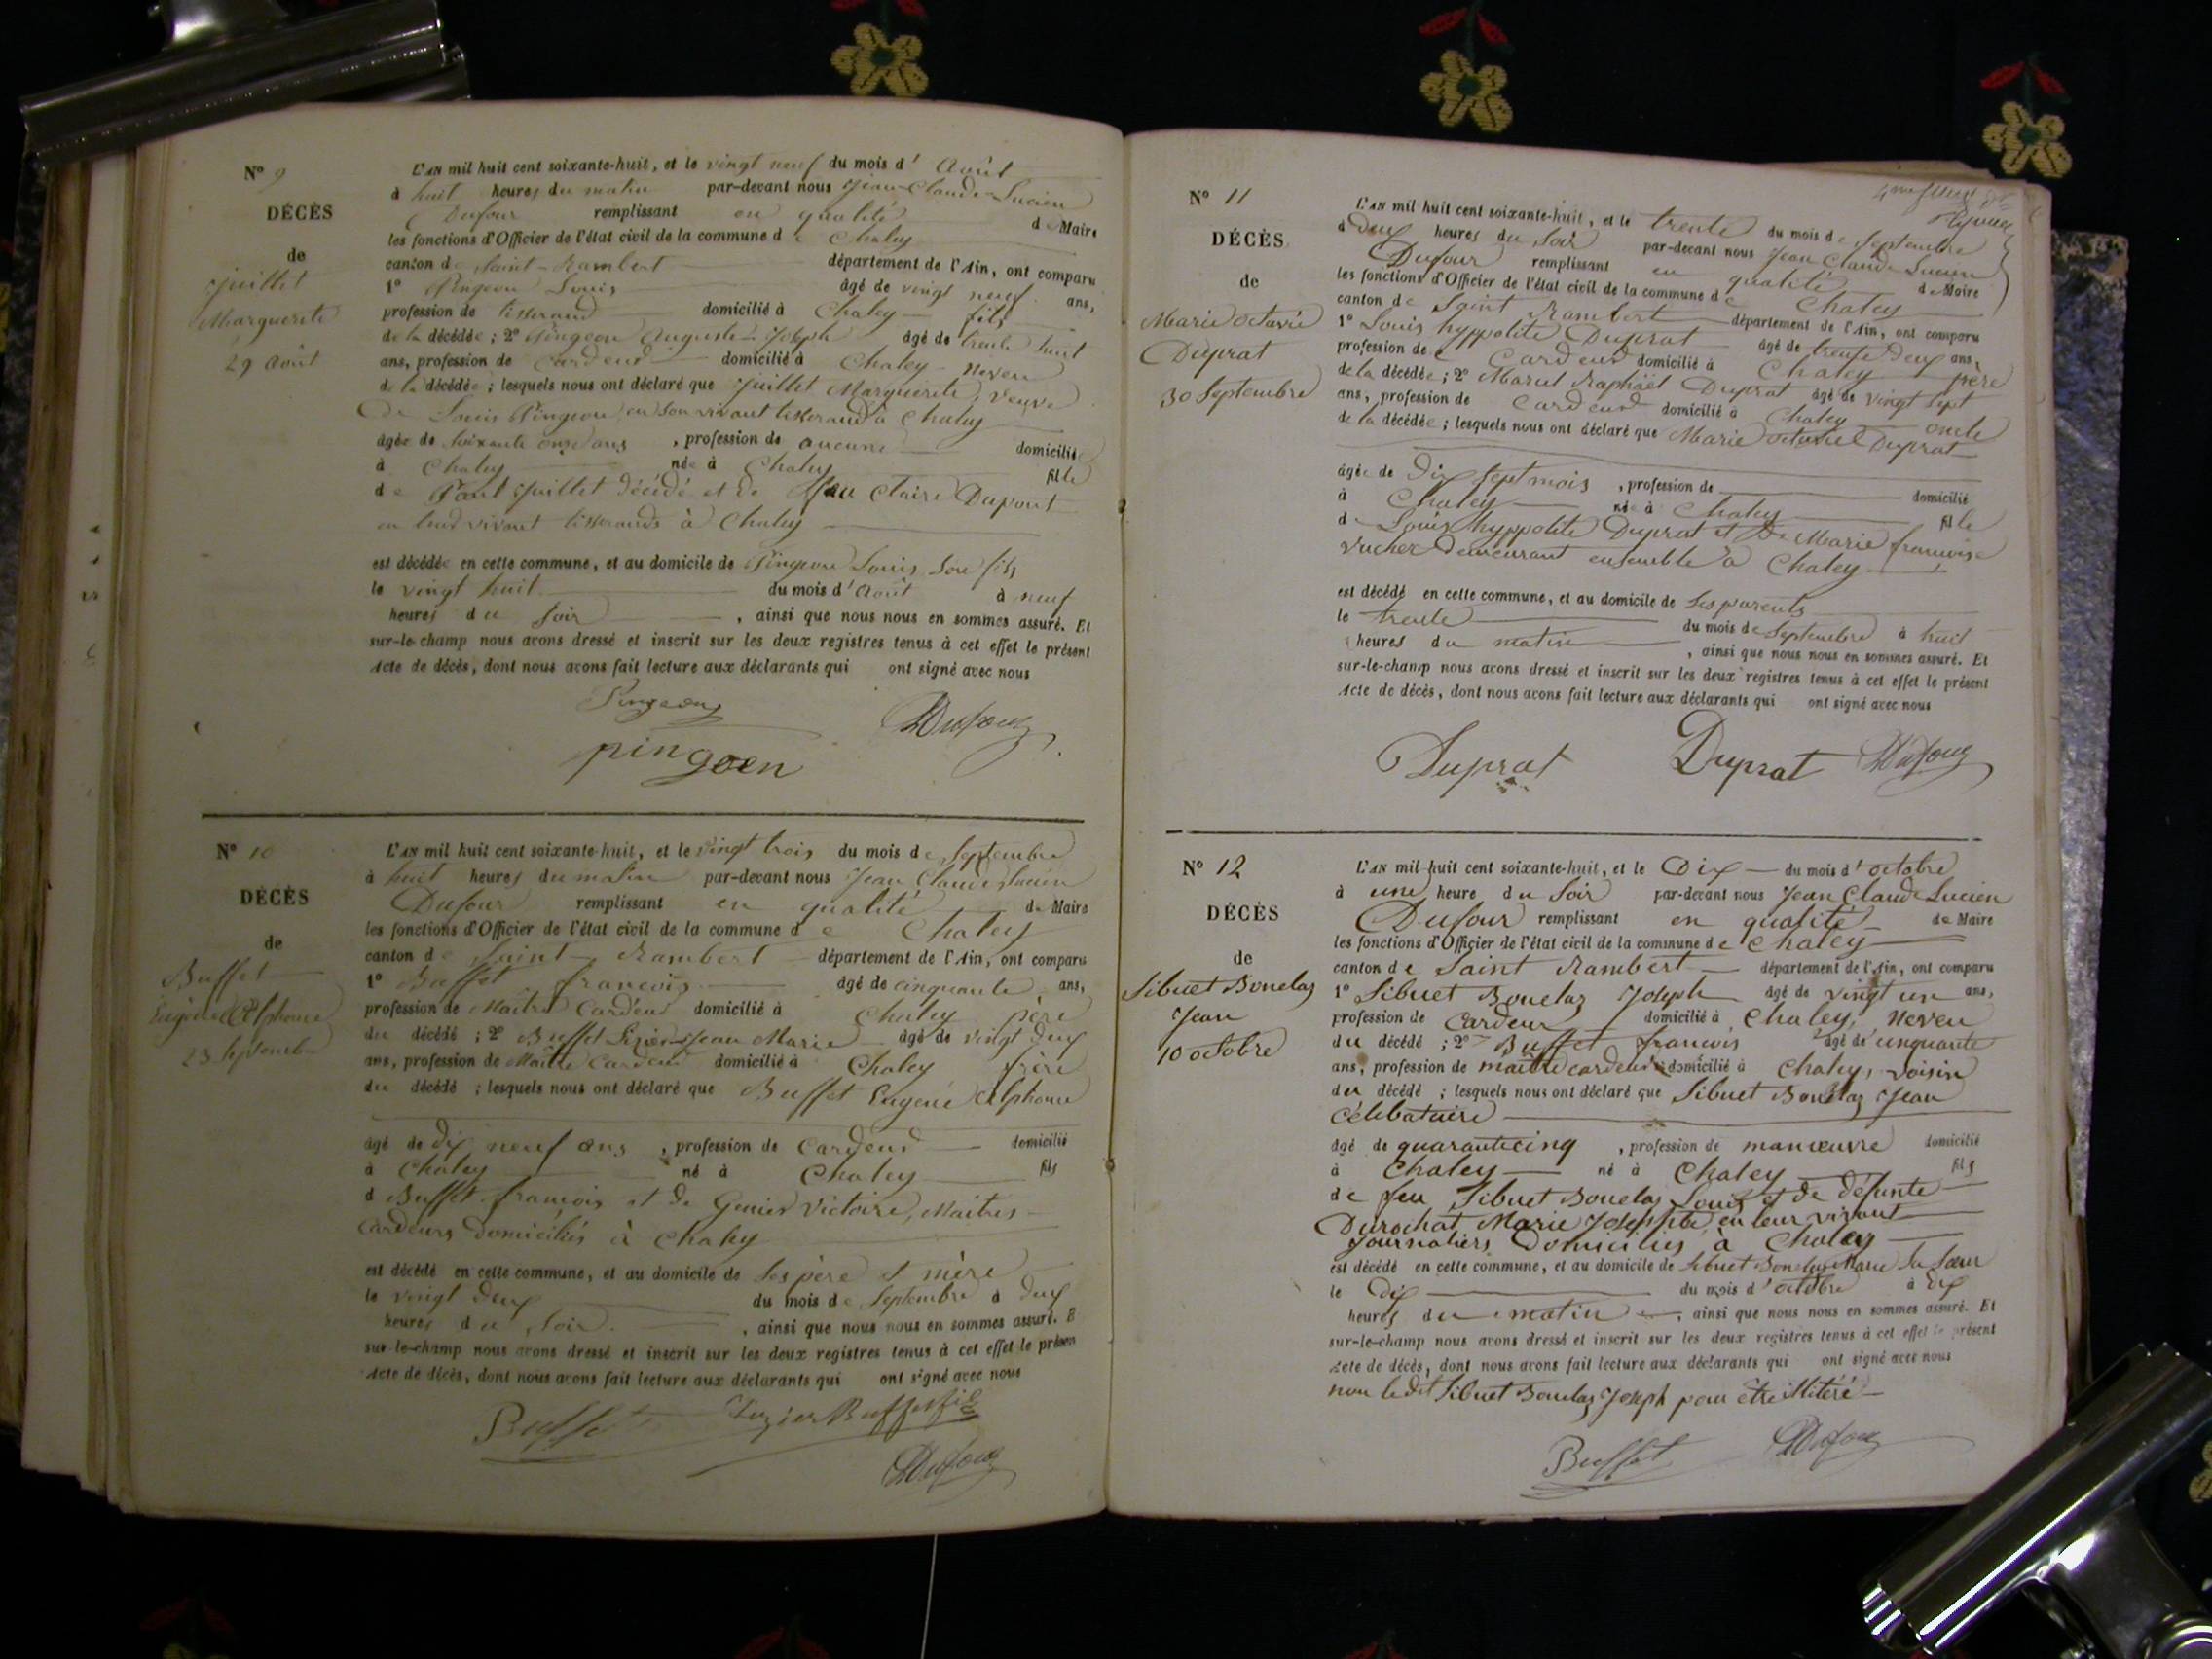 N° 9
DÉCÈS
de
Juillet
Marguerite
29 Août
L'AN mil huit cent soixante-huit, et le vingt neuf du mois d' Août
à huit heures du matin par-devant nous Jean-Claude-Lucien
Dufour remplissant en qualité de Maire
les fonctions d'Officier de l'état civil de la commune de Chaley
canton de Saint-Rambert département de l'Ain, ont comparu
1° Pingeon Louis âgé de vingt neuf ans,
profession de tisserand domicilié à Chaley fils
de la décédée; 2° Pingeon Auguste-Joseph âgé de trente huit
ans, profession de Cardeur domicilié à Chaley Neveu
de la décédée; lesquels nous ont déclaré que Juillet Marguerite, Veuve
de Louis Pingeon, en son vivant tisserand à Chaley
âgée de soixante onze ans, profession de aucune domiciliée
à Chaley née à Chaley fille
de Paul Juillet décédé et de Claire Dupont
en leur vivant tisserands à Chaley
est décédée en cette commune, et au domicile de Pingeon Louis son fils
le vingt huit du mois d'Août à neuf
heures du soir, ainsi que nous nous en sommes assuré. Et
sur-le-champ nous avons dressé et inscrit sur les deux registres tenus à cet effet le présent
Acte de décès, dont nous avons fait lecture aux déclarants qui ont signé avec nous
Pingeon Dufour
pingoen
N° 10
DÉCÈS
de
Buffet
Eugène Alphonse
23 septembre
L'AN mil huit cent soixante-huit, et le vingt trois du mois de Septembre
à huit heures du matin par-devant nous Jean Claude Lucien
Dufour remplissant en qualité de Maire
les fonctions d'Officier de l'état civil de la commune de Chaley
canton de Saint-Rambert département de l'Ain, ont comparu
1° Buffet françois âgé de cinquante ans,
profession de Maître Cardeur domicilié à Chaley père
du décédé; 2° Buffet Jean Marie âgé de vingt deux
ans, profession de Maître Cardeur domicilié à Chaley frère
du décédé; lesquels nous ont déclaré que Buffet Eugène Alphonse
âgé de dix neuf ans, profession de Cardeur domicilié
à Chaley né à Chaley fils
d Buffet françois et de Genier Victoire, Maîtres
Cardeurs domiciliés à Chaley
est décédé en cette commune, et au domicile de ses père et mère
le vingt deux du mois de Septembre à deux
heures du Soir, ainsi que nous nous en sommes assuré. E
sur-le-champ nous avons dressé et inscrit sur les deux registres tenus à cet effet le présen
Acte de décès, dont nous avons fait lecture aux déclarants qui ont signé avec nous
Buffet Buffet fils
Dufour
N° 11
DÉCÈS
de
Marie Octavie
Duprat
30 Septembre
L'AN mil huit cent soixante-huit, et le trente du mois de Septembre
à deux heures du Soir par-devant nous Jean Claude Lucien
Dufour remplissant en qualité de Maire
les fonctions d'Officier de l'état civil de la commune de Chaley
canton de Saint Rambert département de l'Ain, ont comparu
1° Louis hyppolite Duprat âgé de trente deux ans,
profession de Cardeur domicilié à Chaley père
de la décédée; 2° Marcel Raphaël Duprat âgé de vingt sept
ans, profession de Cardeur domicilié à Chaley oncle
de la décédée; lesquels nous ont déclaré que Marie Octavie Duprat
âgée de dix sept mois, profession de domicilié
à Chaley née à Chaley fille
de Louis hyppolite Duprat et de Marie françoise
Vucher demeurant ensemble à Chaley
est décédé en cette commune, et au domicile de ses parents
le trente du mois de Septembre à huit
heures du matin, ainsi que nous nous en sommes assuré. Et
sur-le-champ nous avons dressé et inscrit sur les deux registres tenus à cet effet le présent
Acte de décès, dont nous avons fait lecture aux déclarants qui ont signé avec nous
Duprat Duprat Dufour
N° 12
DÉCÈS
de
Sibuet Bouelaz
Jean
10 octobre
L'AN mil huit cent soixante-huit, et le Dix du mois d'octobre
à une heure du Soir par-devant nous Jean Claude Lucien
Dufour remplissant en qualité de Maire
les fonctions d'Officier de l'état civil de la commune de Chaley
canton de Saint Rambert département de l'Ain, ont comparu
1° Sibuet Bouelaz Joseph âgé de vingt un ans,
profession de Cardeur domicilié à Chaley, Neveu
du décédé; 2° Buffet francois âgé de cinquante
ans, profession de maître cardeur domicilié à Chaley, voisin
du décédé; lesquels nous ont déclaré que Sibuet Bouelaz Jean
Célibataire
âgé de quarante cinq, profession de manœuvre domicilié
à Chaley né à Chaley fils
de feu Sibuet Bouelaz Louis et de défunte
Durochat Marie Josephte en leur vivant
journaliers Domiciliés à Chaley
est décédé en cette commune, et au domicile de Sibuet Bouelaz Marie Sa Sœur
le Dix du mois d'octobre à dix
heures du matin, ainsi que nous nous en sommes assuré. Et
sur-le-champ nous avons dressé et inscrit sur les deux registres tenus à cet effet le présent
Acte de décès, dont nous avons fait lecture aux déclarants qui ont signé avec nous
non ledit Sibuet Bouelaz Joseph pour être illitéré
Buffet Dufour